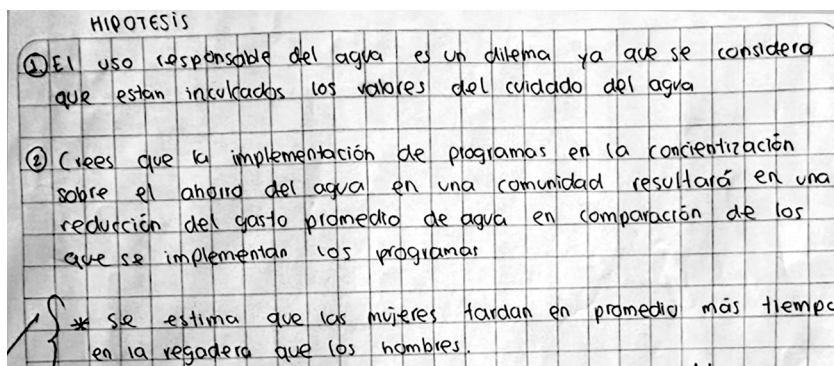 HIPOTESIS
① El uso responsable del agua es un dilema ya que se considera
que estan inculcados los valores del cuidado del agua
② Crees que la implementación de programas en la concientización
sobre el ahorro del agua en una comunidad resultará en una
reducción del gasto promedio de agua en comparación de los
que se implementan los programas
* se estima que las mujeres tardan en promedio más tiempo
en la regadera que los hombres.